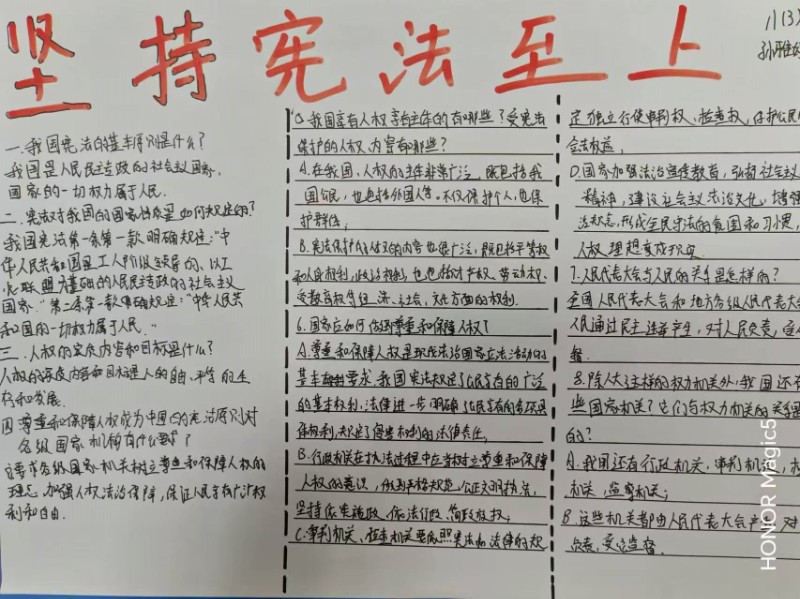 坚持宪法至上
八(3)
孙雅
一.我国宪法的基本原则是什么?
我国是人民民主专政的社会主义国家.
国家的一切权力属于人民.
二.宪法对我国的国家性质是如何规定的?
我国宪法第一条第一款明确规定:"中
华人民共和国是工人阶级领导的、以工
农联盟为基础的人民民主专政的社会主义
国家."第二条第一款明确规定:"中华人民共
和国的一切权力属于人民."
三.人权的实质内容和目标是什么?
人权的实质内容和目标是人的自由、平等的生
存和发展.
四.尊重和保障人权成为中国的宪法原则对
各级国家机构有什么要求?
要求各级国家机关树立尊重和保障人权的
理念,加强人权法治保障,保证人民享有广泛权
利和自由.
我国享有人权享有主体的有哪些?受宪法
保护的人权内容有哪些?
A.在我国,人权的主体非常广泛,既包括我
国公民,也包括外国人等.不仅保护个人,也保
护群体;
B.宪法保护的人权的内容也很广泛,既包括平等权
和人身权利,政治权利,也包括财产权、劳动权、
受教育权等经济、社会、文化方面的权利.
6.国家应如何做到尊重和保障人权?
A.尊重和保障人权是现代法治国家立法活动的
基本要求.我国宪法规定了公民享有的广泛
的基本权利,法律进一步明确了公民享有的各项具
体权利,规定了侵害权利的法律责任,
B.行政机关在执法过程中应当树立尊重和保障
人权的意识,做到严格规范公正文明执法,
坚持依宪施政、依法行政、简政放权;
C.审判机关、检查机关要依照宪法和法律的规
定独立行使审判权、检查权,保护公民
合法权益,
D.国家加强法治宣传教育,弘扬社会主义
精神,建设社会主义法治文化,增强
法观念,形成全民守法的氛围和习惯,
人权理想变成现实.
7.人民代表大会与人民的关系是怎样的?
全国人民代表大会和地方各级人民代表大会
人民通过民主选举产生,对人民负责,受
督.
8.除人大这样的权力机关外,我国还有
些国家机关?它们与权力机关的关系是
的?
A.我国还有行政机关,审判机关,检
机关,监察机关;
B.这些机关都由人民代表大会产生,对
负责,受它监督.
HONOR Magic5